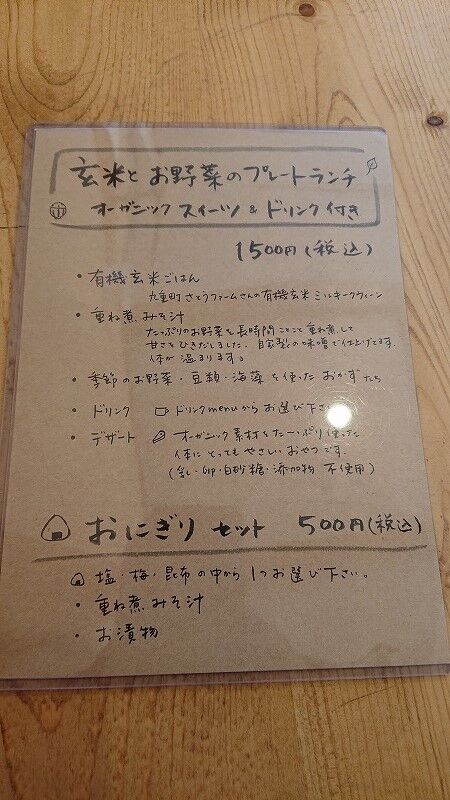 玄米とお野菜のプレートランチ
オーガニックスイーツ & ドリンク付き
1500円(税込)
・有機玄米ごはん
九重町さとうファームさんの有機玄米ミルキークウィーン
・重ね煮みそ汁
たっぷりのお野菜を長時間ことこと重ね煮して
甘さをひきだしました。自家製の味噌で仕上げてます。
体が温まります。
・季節のお野菜・豆類・海藻を使ったおかずたち
・ドリンク ドリンクmenuからお選び下さい
・デザート オーガニック素材をたーっぷり使った
体にとってもやさしいおやつです。
(乳・卵・白砂糖・添加物 不使用)
おにぎりセット 500円(税込)
塩・梅・昆布の中から1つお選び下さい。
・重ね煮みそ汁
・お漬物